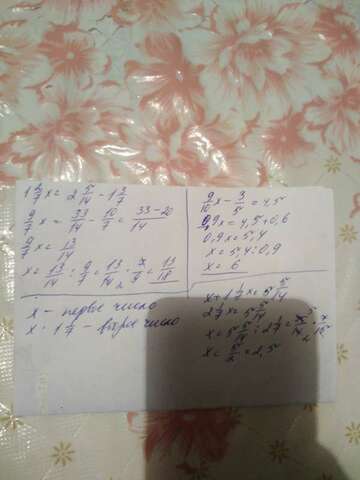 1 2/7 x = 2 5/14 - 1 3/7
9/7 x = 33/14 - 10/7 = 33-20/14
9/7 x = 13/14
x = 13/14 : 9/7 = 13/14 · 7/9 = 13/18
x - первое число
x · 1 1/7 - второе число
9/10 x - 3/5 = 4,5
0,9x = 4,5 + 0,6
0,9x = 5,4
x = 5,4 : 0,9
x = 6
x + 1 1/7 x = 5 5/14
2 1/7 x = 5 5/14
x = 5 5/14 : 2 1/7 = 75/14 · 7/15
x = 5/2 = 2,5